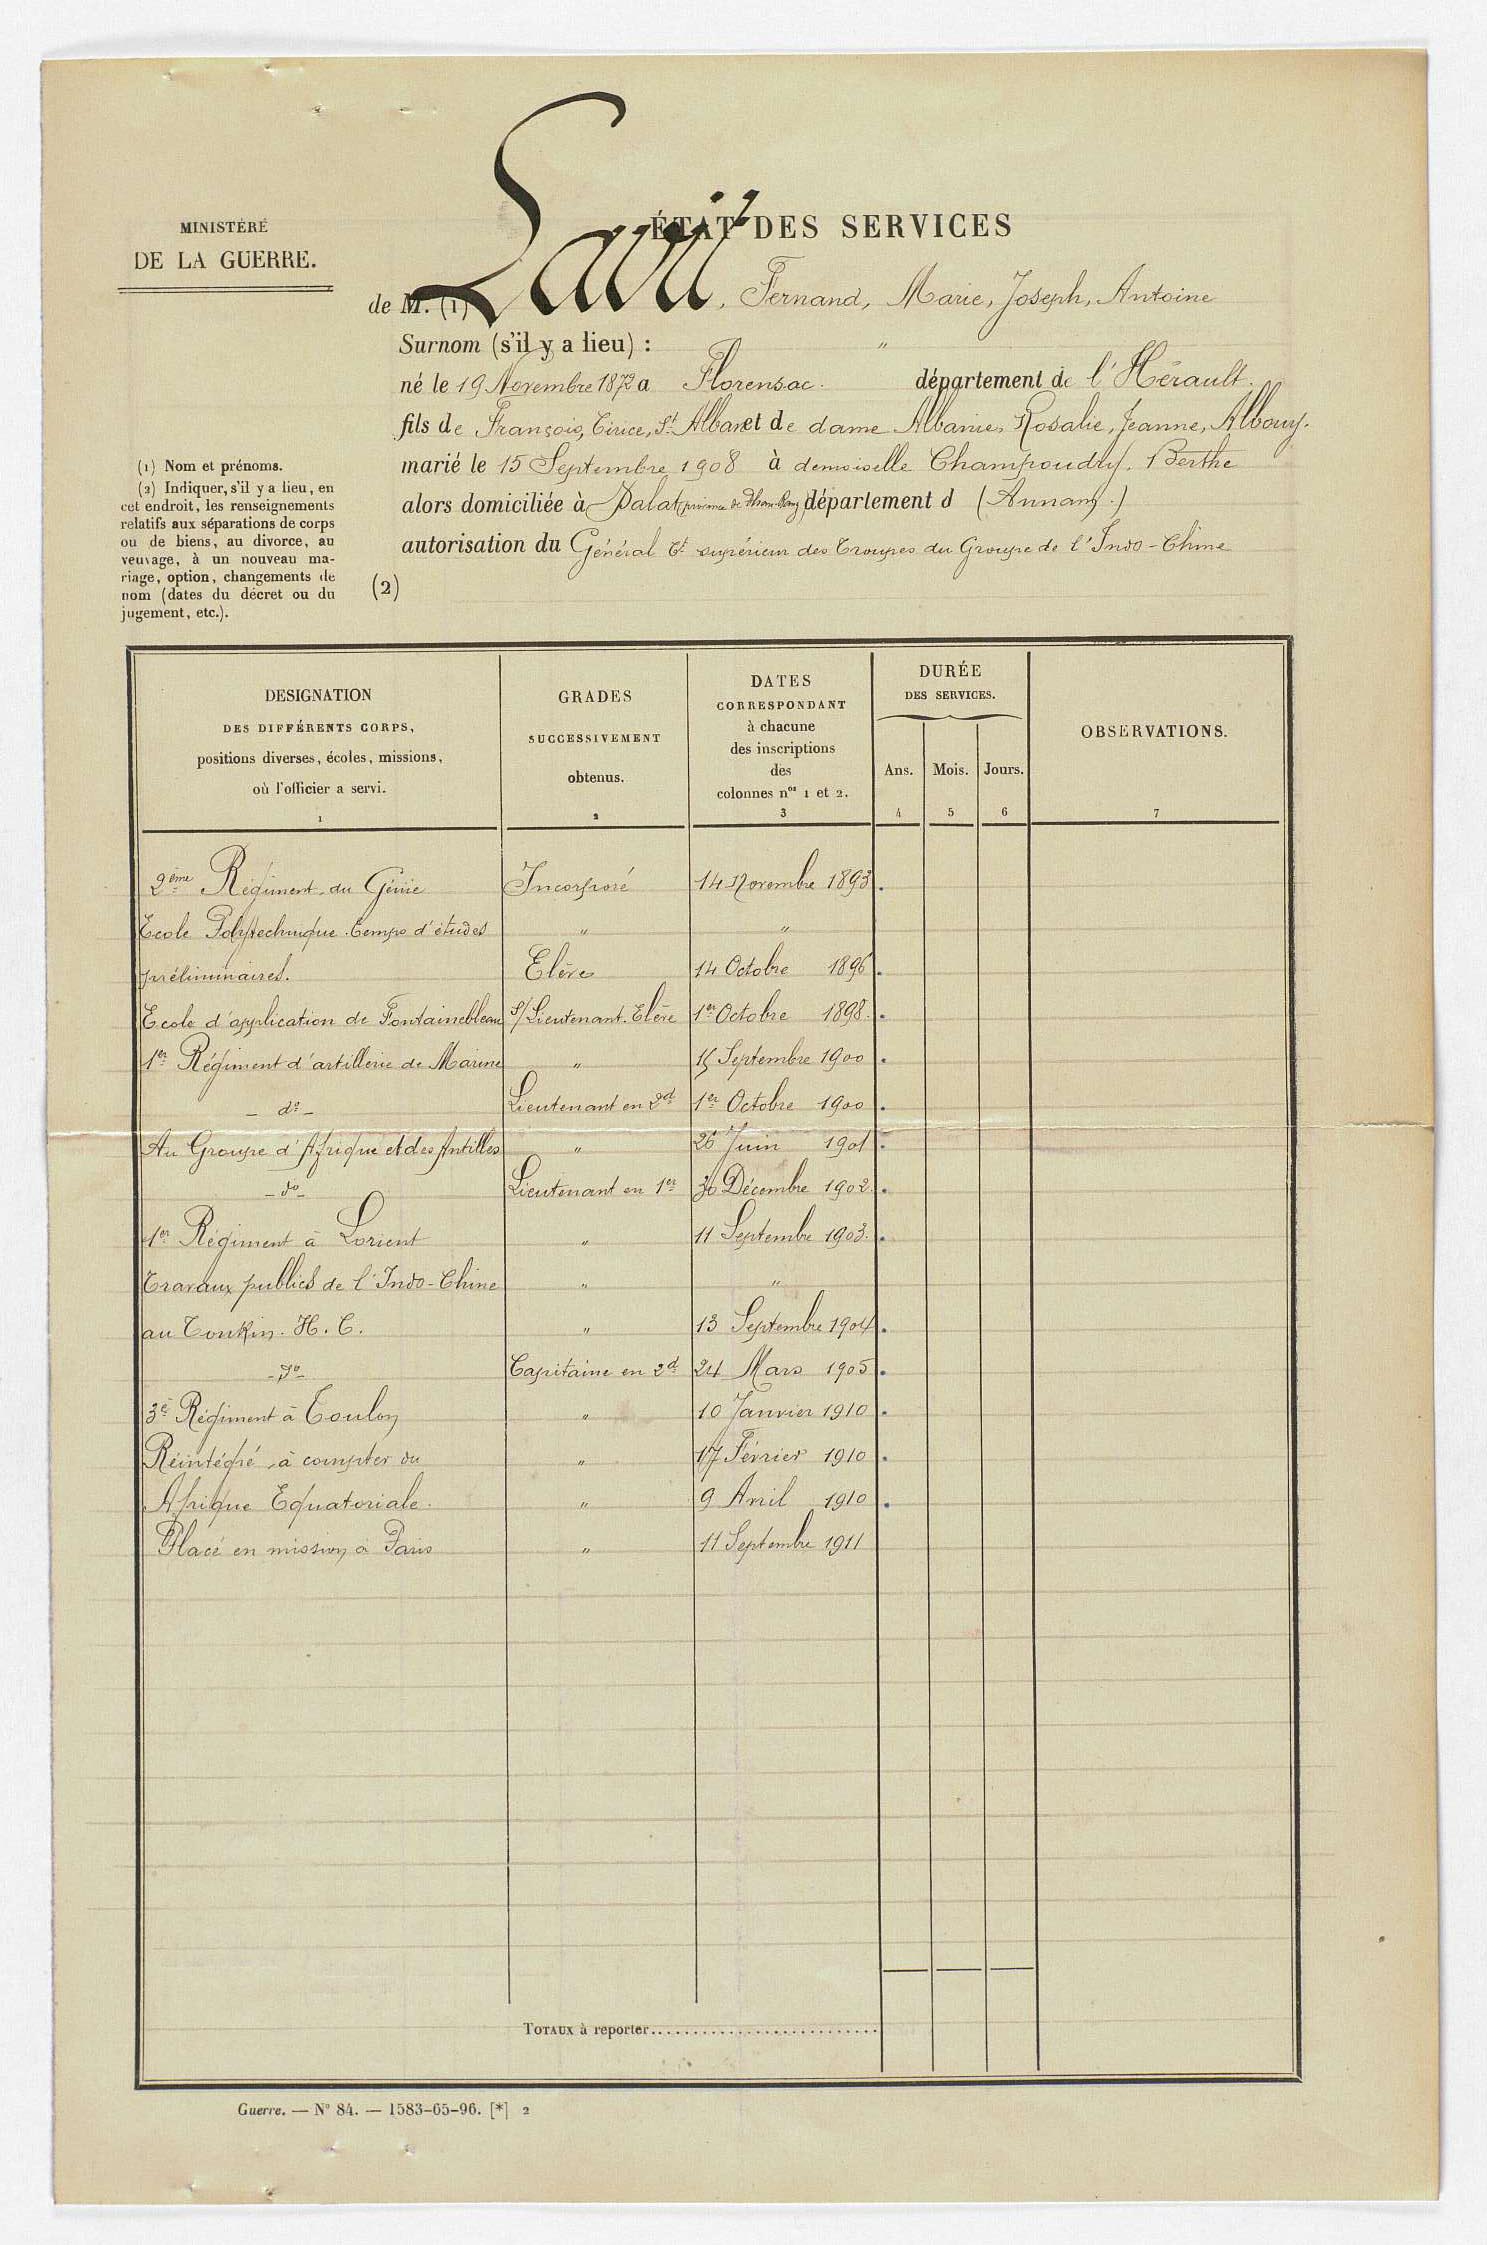 MINISTÈRE
DE LA GUERRE.
ÉTAT DES SERVICES
de M. (1) Lavit, Fernand, Marie, Joseph, Antoine
Surnom (s'il y a lieu) : "
né le 19 Novembre 1872 a Florensac. département de l'Hérault.
fils de François, Cirice, St Alban et de dame Albanie, Rosalie, Jeanne, Albouy.
marié le 15 Septembre 1908 à demoiselle Champoudry. Berthe
alors domiciliée à Dalat (province de Phan-Rang) département d (Annam.)
autorisation du Général Ct supérieur des Troupes du Groupe de l'Indo-Chine
(2)
(1) Nom et prénoms.
(2) Indiquer, s'il y a lieu, en
cet endroit, les renseignements
relatifs aux séparations de corps
ou de biens, au divorce, au
veuvage, à un nouveau ma-
riage, option, changements de
nom (dates du décret ou du
jugement, etc.).
DESIGNATION
DES DIFFÉRENTS CORPS,
positions diverses, écoles, missions,
où l'officier a servi.
1
GRADES
SUCCESSIVEMENT
obtenus.
2
DATES
CORRESPONDANT
à chacune
des inscriptions
des
colonnes nos 1 et 2.
3
DURÉE
DES SERVICES.
Ans. Mois. Jours.
4 5 6
OBSERVATIONS.
7
2ème Régiment du Génie Incorporé 14 Novembre 1893.
Ecole Polytechnique. Temps d'études " "
préliminaires. Elève 14 Octobre 1896.
Ecole d'application de Fontainebleau S/Lieutenant. Elève 1er Octobre 1898.
1er Régiment d'artillerie de Marine " 15 Septembre 1900.
- do - Lieutenant en 2d 1er Octobre 1900.
Au Groupe d'Afrique et des Antilles " 26 Juin 1901.
- do - Lieutenant en 1er 30 Décembre 1902.
1er Régiment à Lorient " 11 Septembre 1903.
Travaux publics de l'Indo-Chine " "
au Tonkin. H. C. " 13 Septembre 1904.
- do - Capitaine en 2d 24 Mars 1905.
3e Régiment à Toulon " 10 Janvier 1910.
Réintégré, à compter du " 17 Février 1910.
Afrique Equatoriale. " 9 Avril 1910.
Placé en mission à Paris " 11 Septembre 1911
TOTAUX à reporter
Guerre. — N° 84. — 1583-65-96. [*] 2